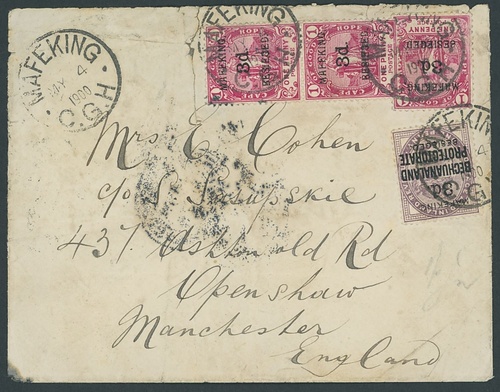 MAFEKING
MY 4
1900
C.G.H.
MAFEKING
MAFEKING
3d.
BESIEGED
MAFEKING
3d.
BESIEGED
MAFEKING
3d.
BESIEGED
ONE PENNY
BECHUANALAND
PROTECTORATE
BESIEGED
Mrs E Cohen
c/o L
437 Ashton old Rd
Openshaw
Manchester
England